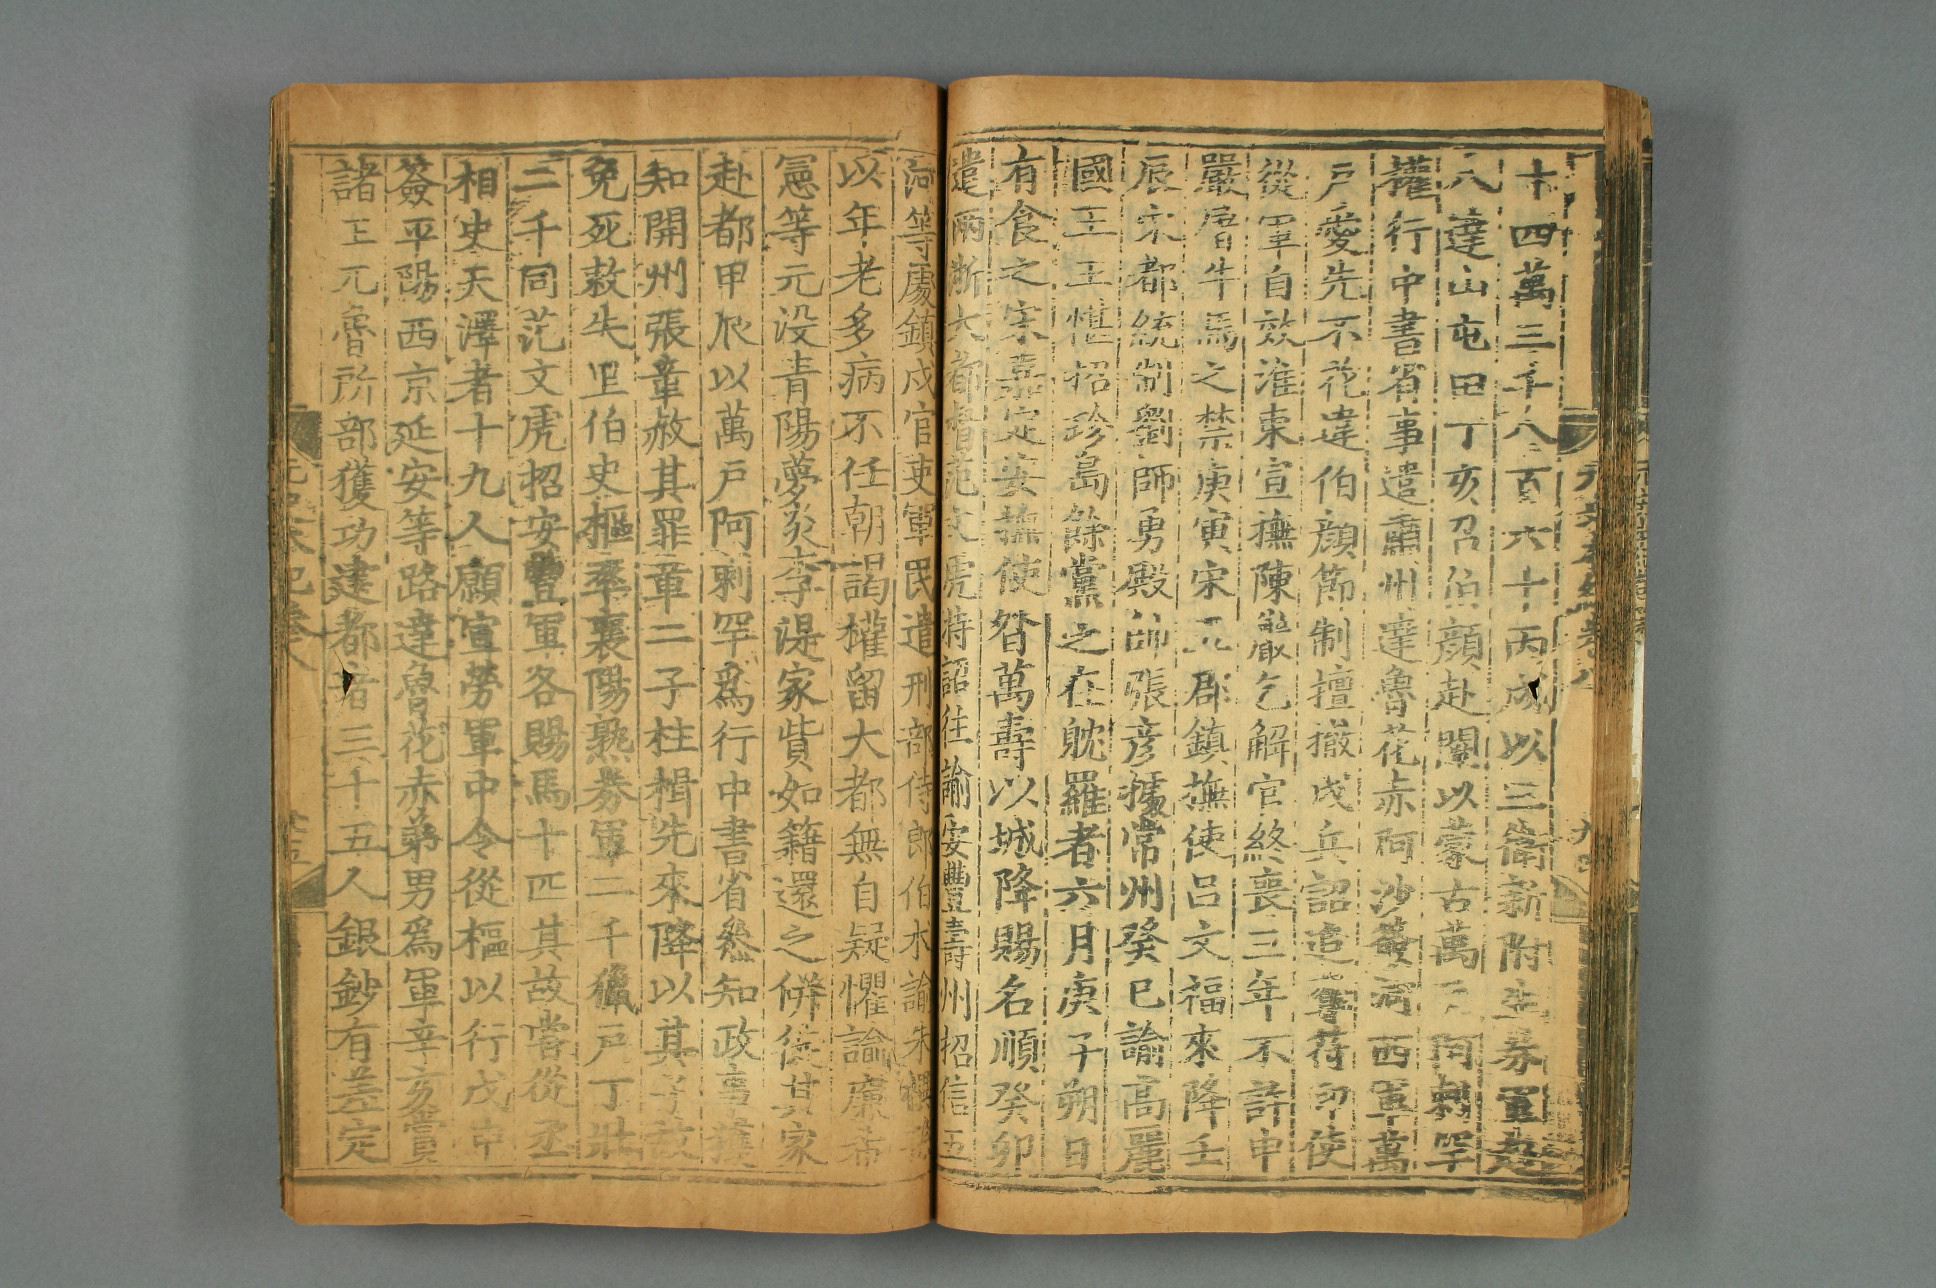 十四萬三千八百六十丙戌以三衛新附生券軍赴
八達山屯田丁亥召伯顔赴闕以蒙古萬戶阿剌罕
權行中書省事遣肅州達魯花赤阿沙簽河西軍萬
戶愛先不花違伯顔節制擅撤戍兵詔追奪符印使
從軍自效淮東宣撫陳巖乞解官終喪三年不許申
嚴屠牛馬之禁庚寅宋五郡鎮撫使呂文福來降壬
辰宋都統制劉師勇殿帥張彦據常州癸巳諭高麗
國王王愖招珍島餘黨之在躭羅者六月庚子朔日
有食之宋嘉定安撫使昝萬壽以城降賜名順癸卯
遣兩浙大都督范文虎持詔往諭安豐壽州招信五
河等處鎮戍官吏軍民遣刑部侍郎伯朮諭朱禩孫
以年老多病不任朝謁權留大都無自疑懼諭廉希
憲等元没青陽夢炎李湜家貲如籍還之併徙其家
赴都甲辰以萬戶阿剌罕爲行中書省叅知政事獲
知開州張章赦其罪章二子柱楫先來降以其子故
免死敕失里伯史樞率襄陽熟券軍二千獵戶丁壯
二千同范文虎招安豐軍各賜馬十匹其故嘗從丞
相史天澤者十九人願宣勞軍中令從樞以行戊申
簽平陽西京延安等路達魯花赤弟男爲軍辛亥賞
諸王兀魯所部獲功建都者三十五人銀鈔有差定
元史本紀卷八